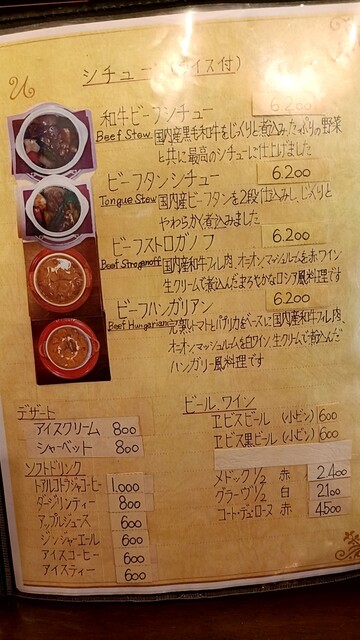 シチュー (ライス付)
和牛ビーフシチュー 6.200
Beef Stew 国内産黒毛和牛をじっくりと煮込み、たっぷりの野菜
と共に最高のシチューに仕上げました
ビーフタンシチュー 6.200
Tongue Stew 国内産ビーフタンを2段仕込みし、じっくりと
やわらかく煮込みました
ビーフストロガノフ 6.200
Beef Stroganoff 国内産和牛フィレ肉、オニオン、マッシュルームを赤ワイン
生クリームで煮込んだまろやかなロシア風料理です
ビーフハンガリアン 6.200
Beef Hungarian 完熟トマトとパプリカをベースに国内産和牛フィレ肉、
オニオン、マッシュルームを白ワイン、生クリームで煮込んだ
ハンガリー風料理です
デザート
アイスクリーム 800
シャーベット 800
ソフトドリンク
トアルコトラジャコーヒー 1.000
ダージリンティー 800
アップルジュース 600
ジンジャーエール 600
アイスコーヒー 600
アイスティー 600
ビール、ワイン
ヱビスビール (小ビン) 600
ヱビス黒ビール (小ビン) 600
メドック1/2 赤 2.400
グラーヴ1/2 白 2.100
コート・デュ・ローヌ 赤 4.500